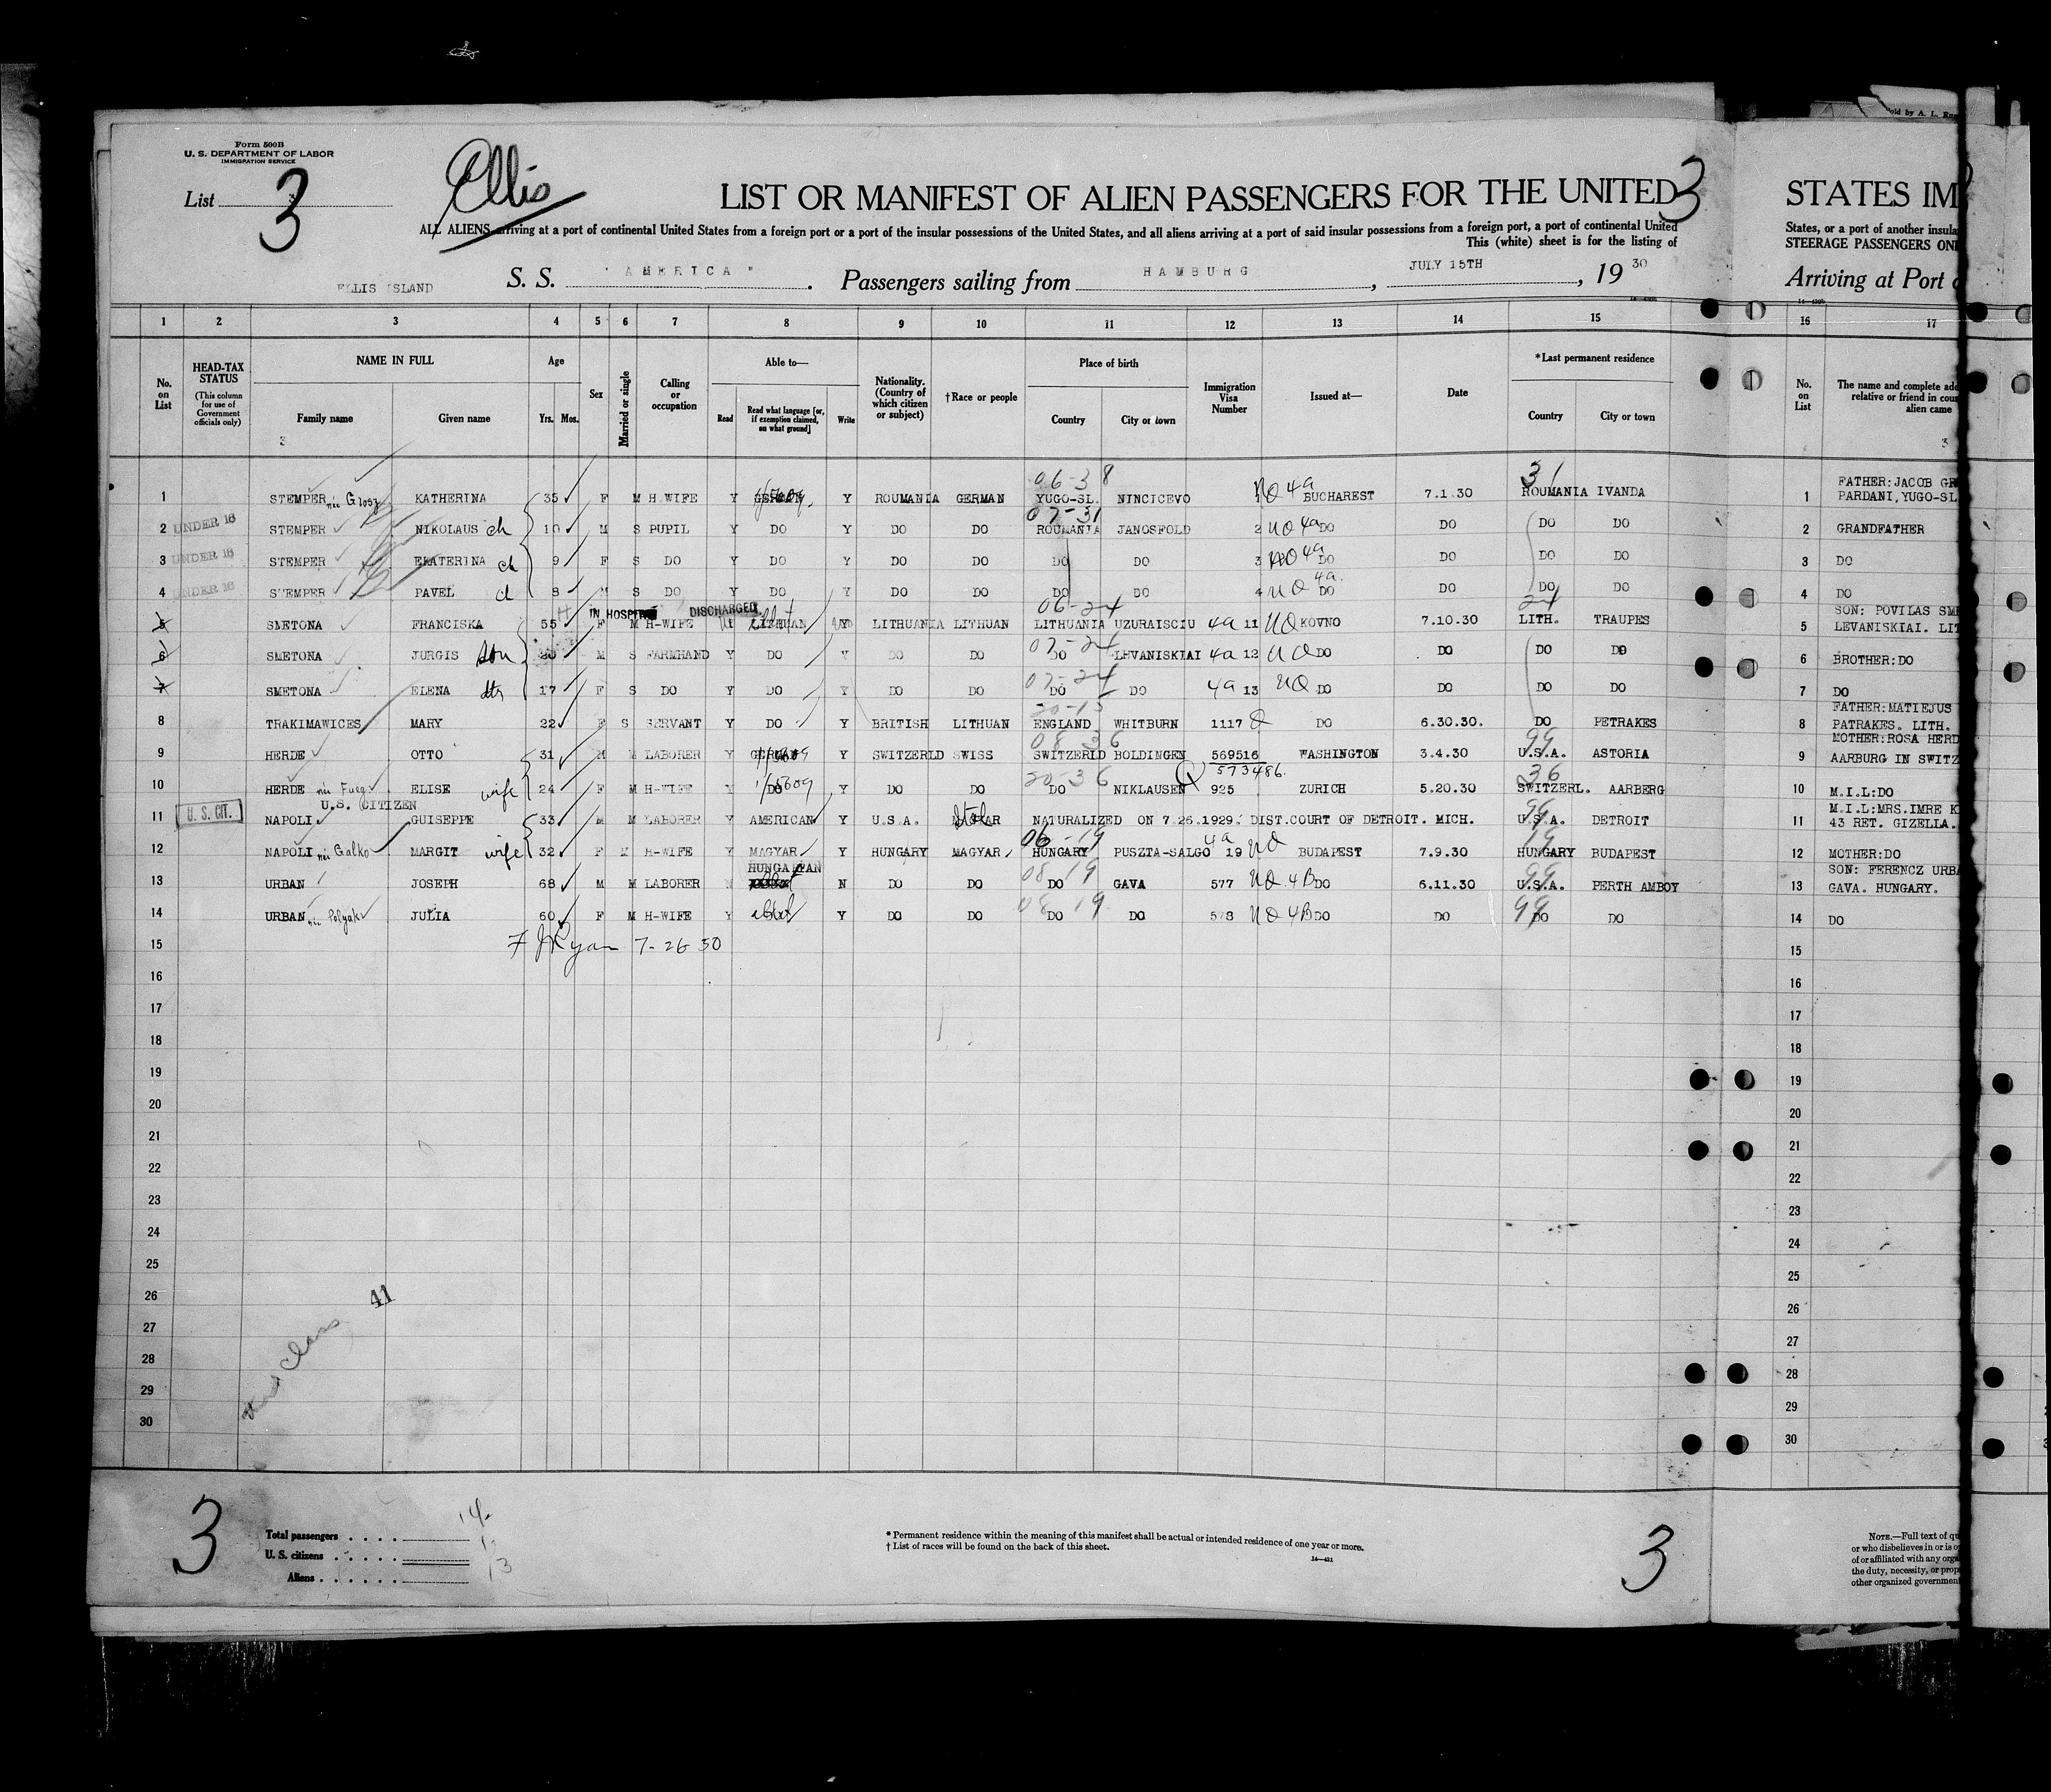 Form 500B
U. S. DEPARTMENT OF LABOR
IMMIGRATION SERVICE
List 3
Ellis
LIST OR MANIFEST OF ALIEN PASSENGERS FOR THE UNITED 3
ALL ALIENS arriving at a port of continental United States from a foreign port or a port of the insular possessions of the United States, and all aliens arriving at a port of said insular possessions from a foreign port, a port of continental United
This (white) sheet is for the listing of
ELLIS ISLAND S. S. "AMERICA". Passengers sailing from HAMBURG, JULY 15TH, 19 30
1 2 3 4 5 6 7 8 9 10 11 12 13 14 15
No. on List HEAD-TAX STATUS (This column for use of Government officials only) NAME IN FULL Family name Given name Age Yrs. Mos. Sex Married or single Calling or occupation Able to— Read Read what language [or, if exemption claimed, on what ground] Write Nationality. (Country of which citizen or subject) †Race or people Place of birth Country City or town Immigration Visa Number Issued at— Date *Last permanent residence Country City or town
3
06-38 31
1 STEMPER née Grosz KATHERINA 35 F M H.WIFE Y GERMAN Y ROUMANIA GERMAN YUGO-SL. NINCICEVO 1 NQ 4a BUCHAREST 7.1.30 ROUMANIA IVANDA
07-31
2 UNDER 16 STEMPER NIKOLAUS ch 10 M S PUPIL Y DO Y DO DO ROUMANIA JANOSFOLD 2 NQ 4a DO DO DO DO
3 UNDER 16 STEMPER EKATERINA ch 9 F S DO Y DO Y DO DO DO DO 3 NQ 4a DO DO DO DO
4 UNDER 16 STEMPER PAVEL ch 8 M S DO Y DO Y DO DO DO DO 4 NQ 4a DO DO DO DO
IN HOSPITAL DISCHARGED 06-24 24
5 SMETONA FRANCISKA 55 F M H-WIFE LITHUAN LITHUANIA LITHUAN LITHUANIA UZURAISCIU 4a 11 NQ KOVNO 7.10.30 LITH. TRAUPES
07-24
6 SMETONA JURGIS son M S FARMHAND Y DO Y DO DO DO LEVANISKIAI 4a 12 NQ DO DO DO DO
07-24
7 SMETONA ELENA dtr 17 F S DO Y DO Y DO DO DO DO 4a 13 NQ DO DO DO DO
20-15
8 TRAKIMAWICES MARY 22 F S SERVANT Y DO Y BRITISH LITHUAN ENGLAND WHITBURN 1117 Q DO 6.30.30. DO PETRAKES
08 36 99
9 HERDE OTTO 31 M M LABORER Y GERMAN Y SWITZERLD SWISS SWITZERLD BOLDINGEN 569516 WASHINGTON 3.4.30 U.S.A. ASTORIA
573486.
20-36 36
10 HERDE née ELISE wife 24 F M H-WIFE Y DO Y DO DO DO NIKLAUSEN Q 925 ZURICH 5.20.30 SWITZERL. AARBERG
U.S. CITIZEN
11 U. S. CIT. NAPOLI GUISEPPE 33 M M LABORER Y AMERICAN Y U.S.A. NATURALIZED ON 7.26.1929. DIST.COURT OF DETROIT. MICH. U.S.A. DETROIT
06-19 19
12 NAPOLI née Galko MARGIT wife 32 F M H-WIFE Y MAGYAR Y HUNGARY MAGYAR HUNGARY PUSZTA-SALGO 4a 19 NQ BUDAPEST 7.9.30 HUNGARY BUDAPEST
HUNGARIAN 08 19 99
13 URBAN JOSEPH 68 M M LABORER N N DO DO DO GAVA 577 NQ 4B DO 6.11.30 U.S.A. PERTH AMBOY
08 19 99
14 URBAN née Polyak JULIA 60 F M H-WIFE Y Y DO DO DO DO 578 NQ 4B DO DO DO DO
15 F J Ryan 7-26 30
16
17
18
19
20
21
22
23
24
25
26
27
28
29
30
41
Class
3
Total passengers . . . . 14
U. S. citizens . . . . . 1
Aliens . . . . . . 13
* Permanent residence within the meaning of this manifest shall be actual or intended residence of one year or more.
† List of races will be found on the back of this sheet.
14—421
3
old by A. L.
STATES IM
States, or a port of another insula
STEERAGE PASSENGERS ON
Arriving at Port
16 17
No. on List The name and complete add
relative or friend in cou
alien came
3
FATHER:JACOB GR
1 PARDANI,YUGO-SL
2 GRANDFATHER
3 DO
4 DO
SON: POVILAS SME
5 LEVANISKIAI. LIT
6 BROTHER:DO
7 DO
FATHER:MATIEJUS
8 PATRAKES. LITH.
MOTHER:ROSA HERD
9 AARBURG IN SWITZ
10 M.I.L:DO
M.I.L:MRS.IMRE K
11 43 RET. GIZELLA.
12 MOTHER:DO
SON: FERENCZ URBA
13 GAVA. HUNGARY.
14 DO
15
16
17
18
19
20
21
22
23
24
25
26
27
28
29
30
NOTE.—Full text of qu
or who disbelieves in or is o
of or affiliated with any orga
the duty, necessity, or prop
other organized government